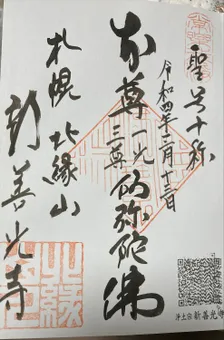 聖号十称
令和四年三月十三日
本尊一光三尊阿弥陀佛
札幌北縁山
新善光寺
浄土宗 新善光寺